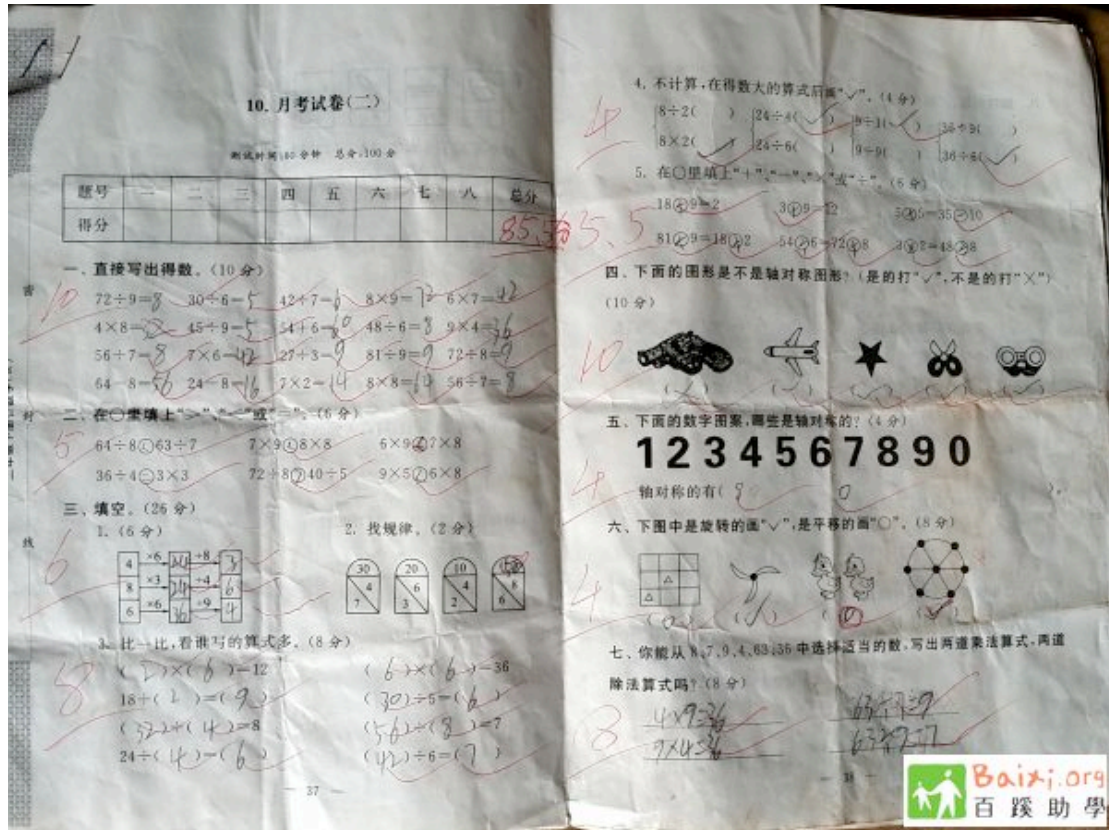 10. 月考试卷(二)
测试时间:60分钟 总分:100分
题号 一 二 三 四 五 六 七 八 总分
得分 85.5
一、直接写出得数。(10分)
10
72÷9=8 30÷6=5 42÷7=6 8×9=72 6×7=42
4×8=32 45÷9=5 54+6=60 48÷6=8 9×4=36
56÷7=8 7×6=42 27÷3=9 81÷9=9 72÷8=9
64-8=56 24-8=16 7×2=14 8×8=64 56÷7=8
二、在○里填上">"、"<"或"="。(6分)
5
64÷8 63÷7 7×9 8×8 6×9 7×8
36÷4=3×3 72÷8 40÷5 9×5 6×8
三、填空。(26分)
1. (6分) 2. 找规律。(2分)
6
4 ×6 24 ÷8 3
8 ×3 24 ÷4 6
6 ×6 36 ÷9 4
30 4 7
20 6 3
10 4 2
8 6
3. 比一比,看谁写的算式多。(8分)
8
(2)×(6)=12 (6)×(6)=36
18÷(2)=(9) (30)÷5=(6)
(32)÷(4)=8 (56)÷(8)=7
24÷(4)=(6) (42)÷6=(7)
— 37 —
密
封
线
4. 不计算,在得数大的算式后画"✓"。(4分)
4
8÷2( ) 24÷4(✓) 9÷1(✓) 36÷9( )
8×2(✓) 24÷6( ) 9÷9( ) 36÷6(✓)
5. 在○里填上"+"、"-"、"×"或"÷"。(6分)
5.5
18÷9=2 3+9=12 5 5=35 10
81 9=18 2 54 6=72 8 3 2=48 8
四、下面的图形是不是轴对称图形?(是的打"✓",不是的打"×")
(10分)
10
五、下面的数字图案,哪些是轴对称的?(4分)
1234567890
4
轴对称的有(8 0 )。
六、下图中是旋转的画"✓",是平移的画"○"。(8分)
4
七、你能从8、7、9、4、63、36中选择适当的数,写出两道乘法算式,两道
除法算式吗?(8分)
8
4×9=36 63÷7=9
9×4=36 63÷9=7
— 38 —
Baixi.org
百蹊助學